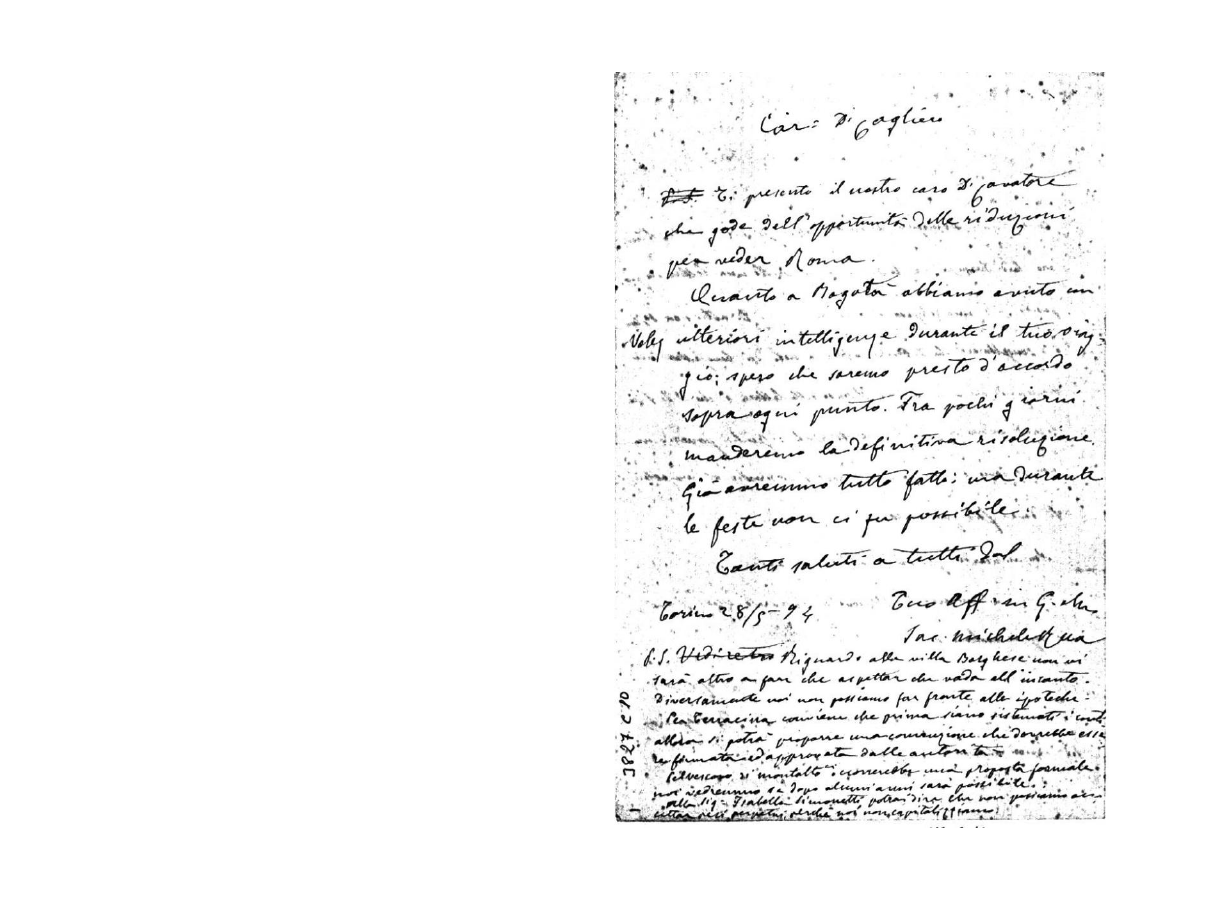 Car.: D. Cagliero
P.S. Ti presento il nostro caro D. Cavatore
che gode dell'opportunità delle riduzioni
per veder Roma.
Quanto a Bogotà abbiamo avuto un
ulteriori intelligenze durante il tuo viag-
gio; spero che saremo presto d'accordo
sopra ogni punto. Fra pochi giorni
manderemo la definitiva risoluzione.
Già avremmo tutto fatto; ma durante
le feste non ci fu possibile.
Tanti saluti a tutti dal
Torino 28/5-94 Tuo Aff.
Sac. Michele Rua
P.S. Vedi retro Riguardo alla villa Borghese non vi
sarà altro a far che aspettar che vada all'incanto.
Diversamente noi non possiamo far fronte alle ipoteche.
Per Terracina conviene che prima siano sistemati i conti
allora si potrà proporre una convenzione che dovrebbe esse
re firmata ed approvata dalle autorità
Pel vescovo di Montalto occorrerebbe una proposta formale.
noi vedremmo se dopo alcuni anni sarà possibile.
Alla Sig. Isabella Simonetti potrai dire che non possiamo ac-
cettar perchè noi non capitalizziamo.
3827 C 10